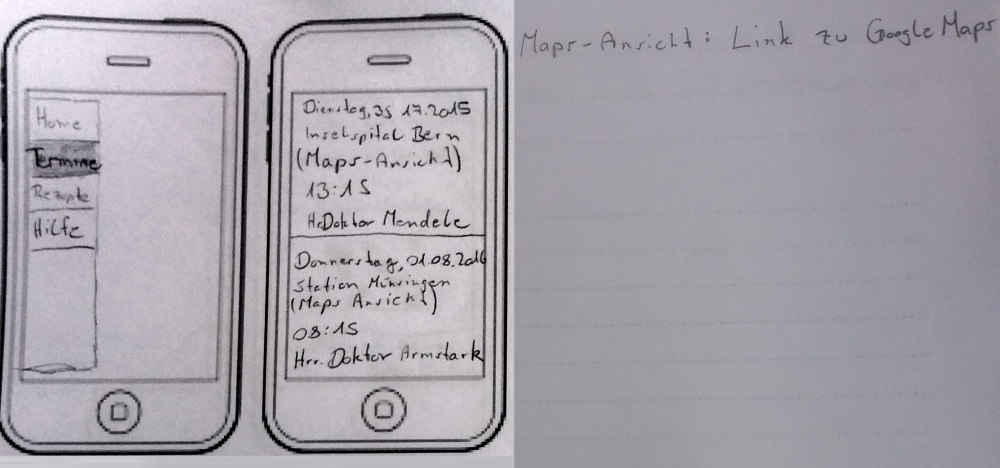 Home
Termine
Rezepte
Hilfe
Dienstag, 17.2015
Inselspital Bern
(Maps-Ansicht)
13:15
Hr. Doktor Mendele
Donnerstag, 01.08.2016
Station Münsingen
(Maps Ansicht)
08:15
Hrr. Doktor Armstark
Maps-Ansicht: Link zu Google Maps